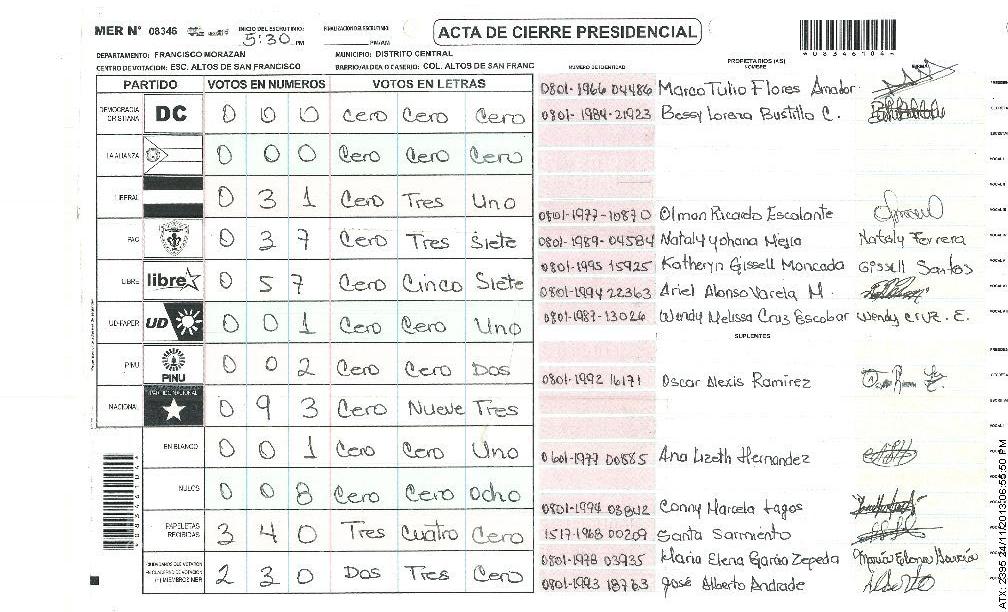 MER N° 08346 INICIO DEL ESCRUTINIO: 5:30 PM FINALIZACION DEL ESCRUTINIO: PM/AM
ACTA DE CIERRE PRESIDENCIAL
08346104
DEPARTAMENTO: FRANCISCO MORAZAN MUNICIPIO: DISTRITO CENTRAL
CENTRO DE VOTACION: ESC. ALTOS DE SAN FRANCISCO BARRIO/ALDEA O CASERIO: COL. ALTOS DE SAN FRANC
PARTIDO VOTOS EN NUMEROS VOTOS EN LETRAS
DEMOCRACIA CRISTIANA DC 0 0 0 Cero Cero Cero
LA ALIANZA 0 0 0 Cero Cero Cero
LIBERAL 0 3 1 Cero Tres Uno
PAC 0 3 7 Cero Tres Siete
LIBRE libre 0 5 7 Cero Cinco Siete
UD-FAPER UD 0 0 1 Cero Cero Uno
PINU PINU 0 0 2 Cero Cero Dos
NACIONAL PARTIDO NACIONAL 0 9 3 Cero Nueve Tres
EN BLANCO 0 0 1 Cero Cero Uno
NULOS 0 0 8 Cero Cero Ocho
PAPELETAS RECIBIDAS 3 4 0 Tres Cuatro Cero
CIUDADANOS QUE VOTARON EN CUADERNO DE VOTACION (+) MIEMBROS MER 2 3 0 Dos Tres Cero
NUMERO DE IDENTIDAD PROPIETARIOS (AS) NOMBRE
0801-1966 04486 Marco Tulio Flores Amador
0801-1984-21923 Bessy Lorena Bustillo C.
0801-1977-10870 Olman Ricardo Escalante
0801-1989-04584 Nataly Yohana Mejia Nataly Ferrera
0801-1995 15925 Katheryn Gissell Moncada Gissell Santos
0801-1994 22363 Ariel Alonso Varela M.
0801-1987-13026 Wendy Melissa Cruz Escobar Wendy Cruz. E.
SUPLENTES
0801-1992 16171 Oscar Alexis Ramirez
0601-1977 00585 Ana Lizeth Hernandez
0801-1994 03842 Conny Marcela Lagos
1517-1968 00209 Santa Sarmiento
0801-1978 03935 Maria Elena Garcia Zepeda Maria Elena Garcia
0801-1993 18763 José Alberto Andrade
08346104
ATX: 2395 24/11/2013 06:55:50 PM